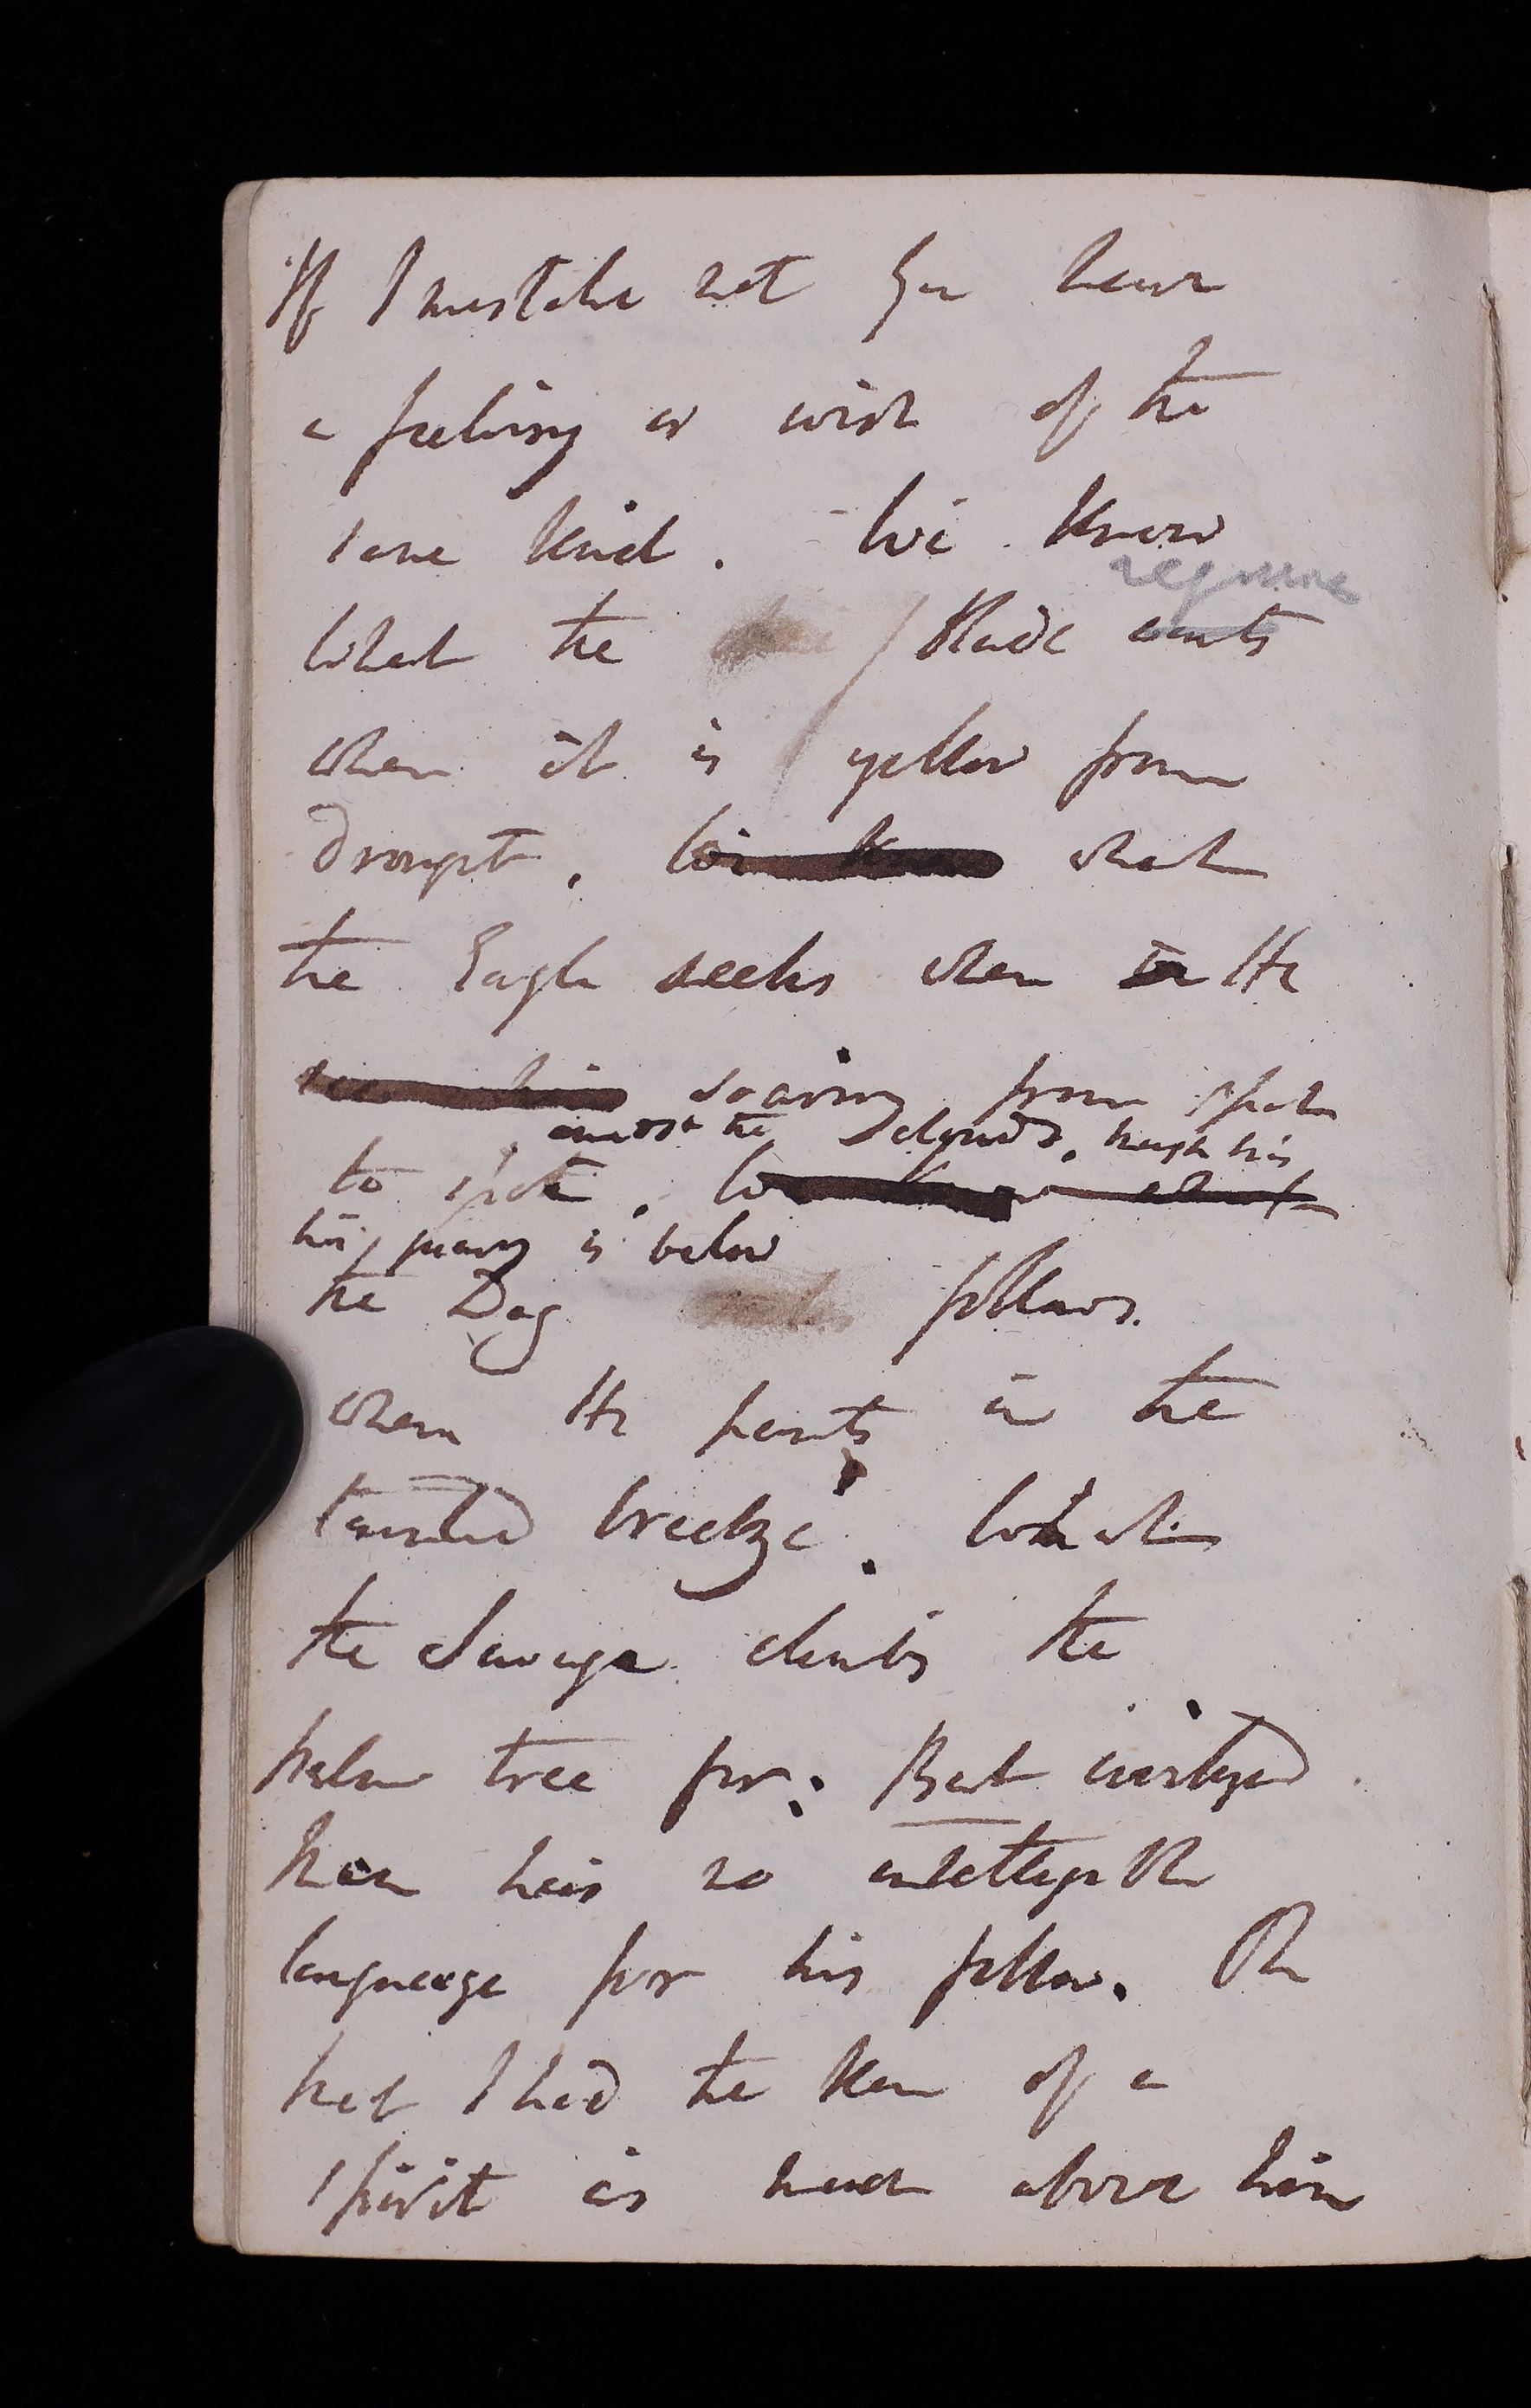 If I mistake not you have
a feeling or wish of the
same kind. We know
require
what the blade wants
when it is yellow from
drought, we know what
the Eagle seeks when in He
sees him soaring from spot
amidst the clouds, though his
to spot, we know what
his prey is below
the Dog follows.
when He pants in the
tainted breeze. What
the Savage climbs the
palm tree for: But civilized
man has no intelligible
language for his fellow. Oh
that I had the ken of a
spirit as much above him